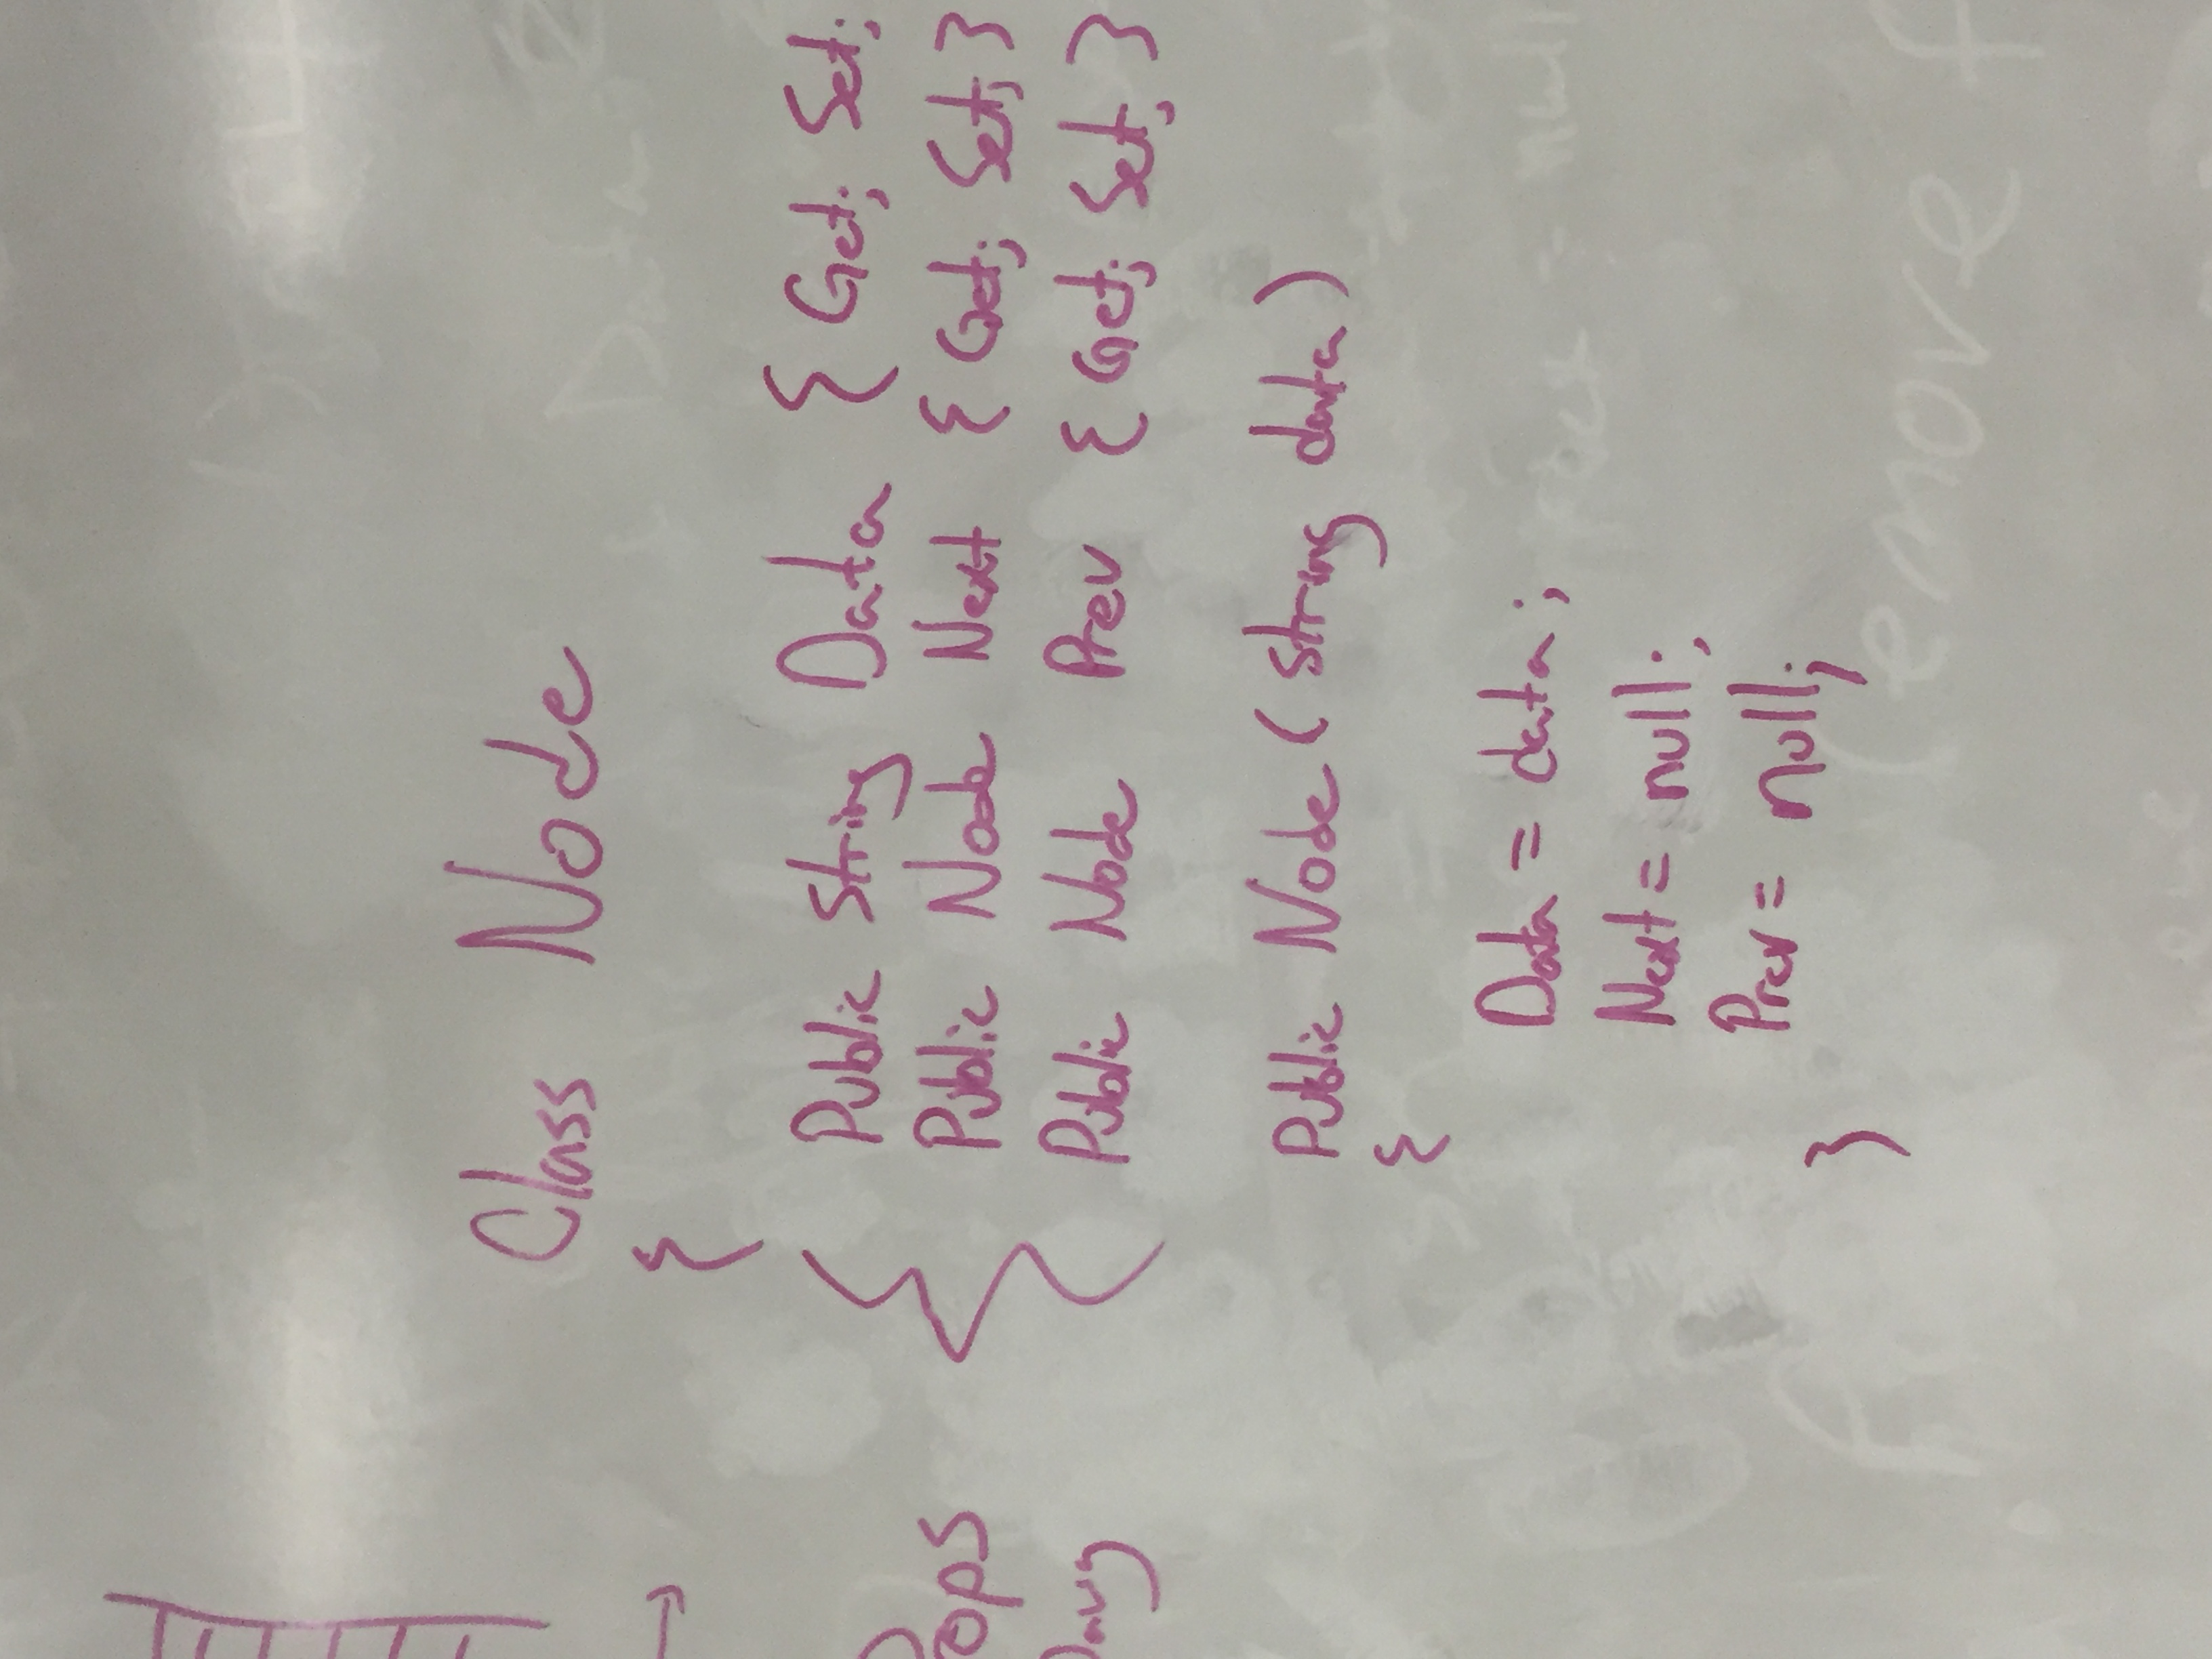 Class Node
{
Public String Data { Get; Set;
Public Node Next { Get; Set; }
ops
Public Node Prev { Get; Set; }
Public Node ( string data )
{
Data = data ;
Next = null ;
Prev = null ;
}
remove f
= null
Data